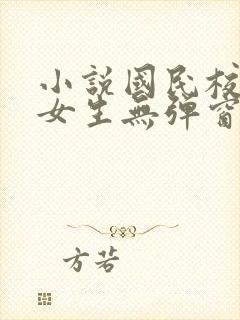 小説國民校
女生無彈窗
方若